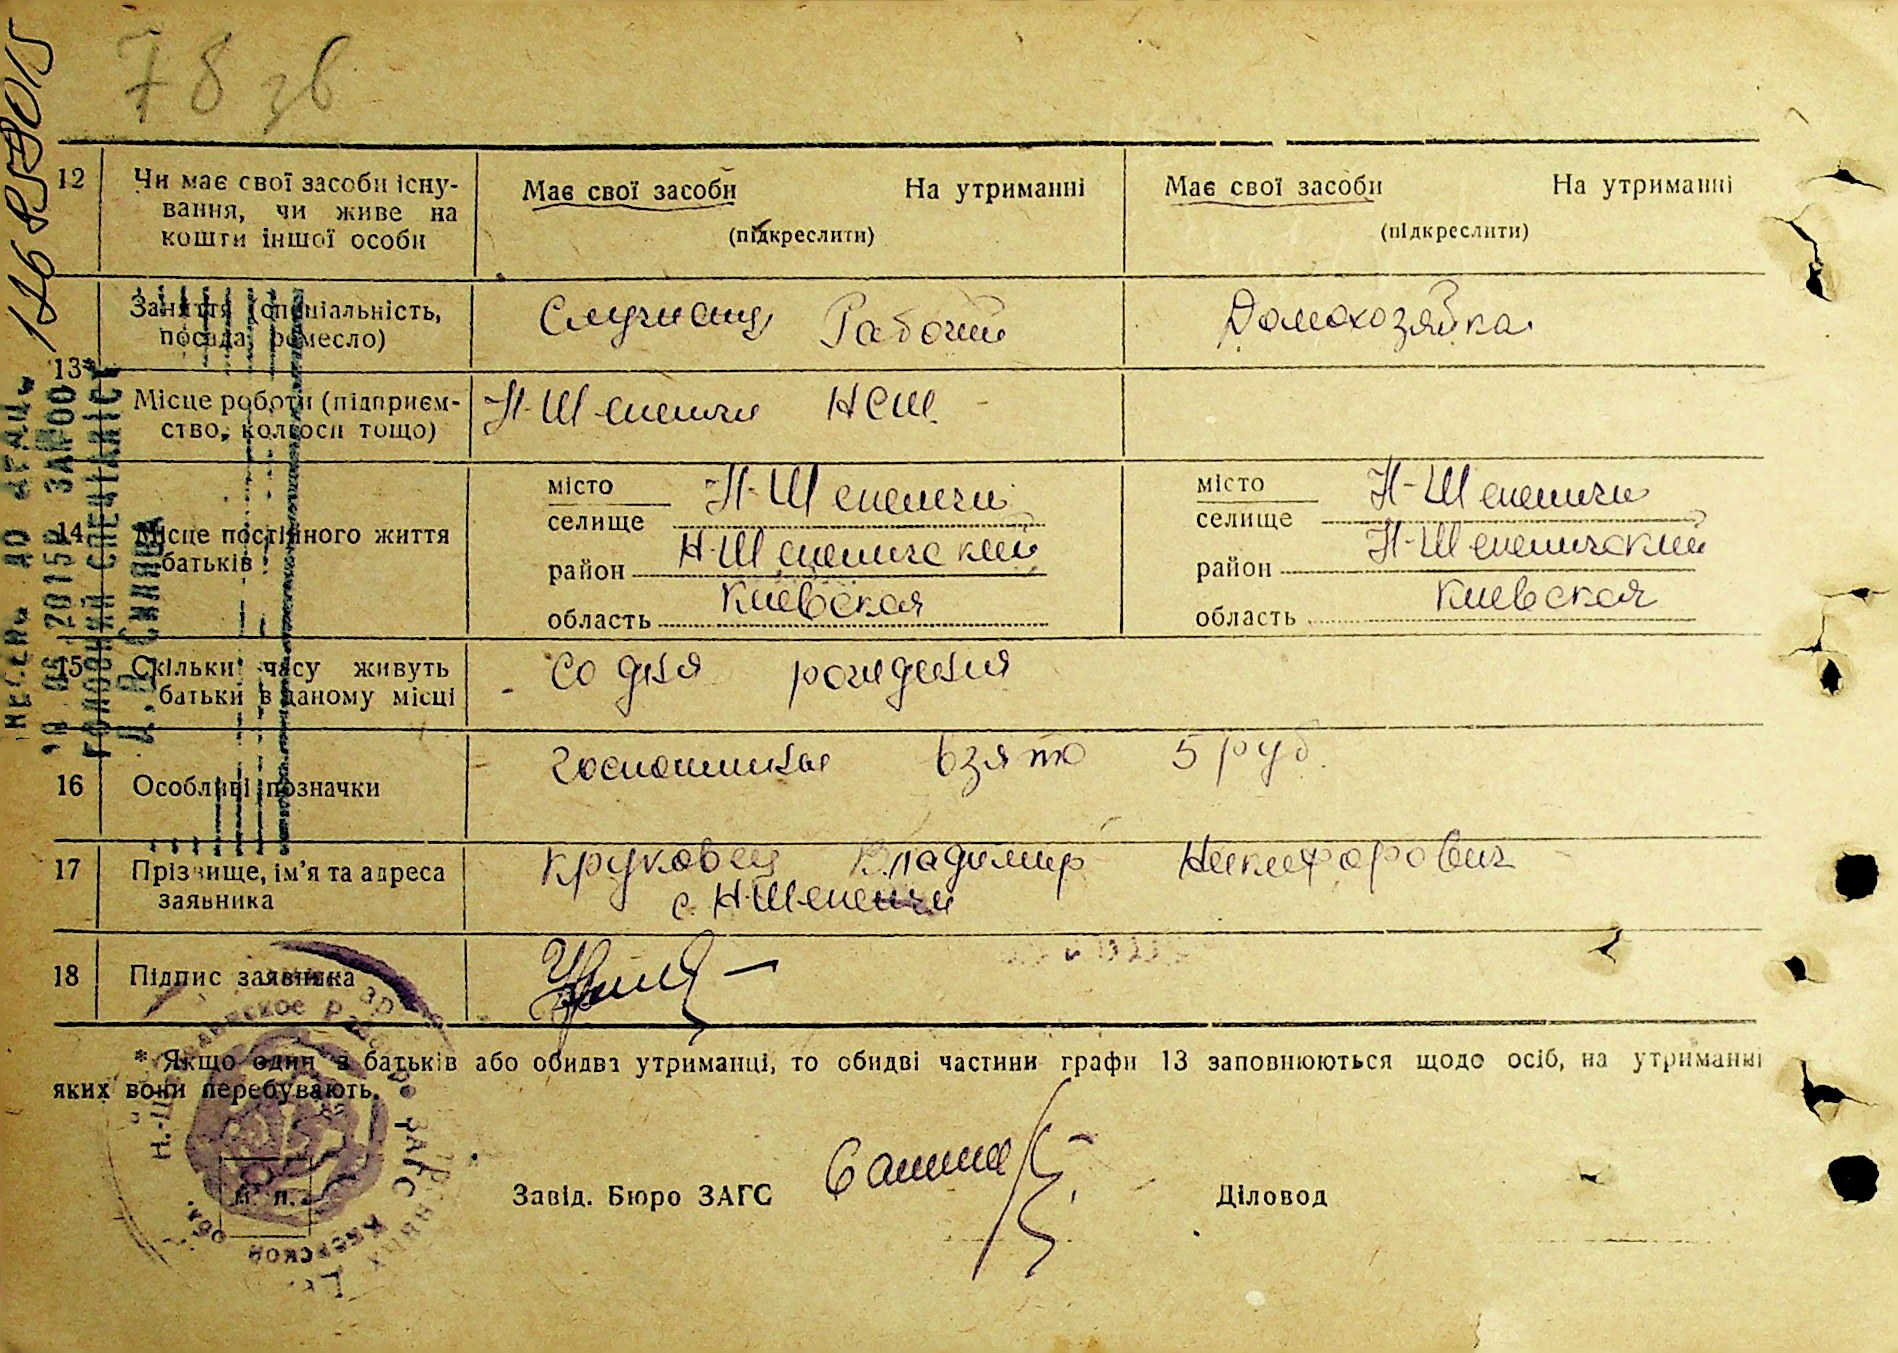 78 зв
12 Чи має свої засоби існу-
вання, чи живе на
кошти іншої особи
Має свої засоби На утриманні
(підкреслити)
Має свої засоби На утриманні
(підкреслити)
13*
Заняття (спеціальність,
посада, ремесло)
Рабочий
Домохозяйка
Місце роботи (підприєм-
ство, колгосп тощо)
Н-Шепеличи НСШ
14 Місце постійного життя
батьків
місто
селище Н-Шепеличи
район Н-Шепеличский
область Киевская
місто
селище Н-Шепеличи
район Н-Шепеличский
область Киевская
15 Скільки часу живуть
батьки в даному місці
Со дня рождения
16 Особливі позначки
госпошлины взято 5 руб.
17 Прізвище, ім'я та адреса
заявника
Круковец Владимир Никифорович
с. Н-Шепеличи
18 Підпис заявника
* Якщо один з батьків або обидва утриманці, то обидві частини графи 13 заповнюються щодо осіб, на утриманні
яких вони перебувають.
М. П.
Завід. Бюро ЗАГС
Діловод
ЗАГС Киевской обл.
Головний спеціаліст